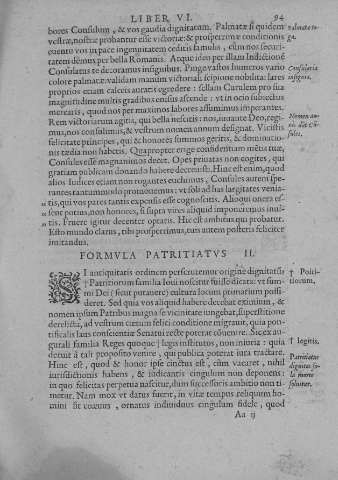 LIBER VI. 94
bores Consulum, & vos gaudia dignitatum. Palmatæ si quidem
vestræ, nostræ probantur esse victoriæ: & prosperrimæ conditionis
euentu vos in pace ingenuitatem ceditis famulis, cum nos securi-
tatem demus per bella Romanis. Atque ideo per illam Indictionem
Consulatus te decoramus insignibus. Pinge vastos humeros vario
colore palmatæ: validam manum victoriali scipione nobilita: lares
proprios etiam calceis auratis egredere: sellam Curulem pro sua
magnitudine multis gradibus ensus ascende: vt in ocio subiectus
mereatis, quod nos per maximos labores assumimus imperantes.
Rem victoriarum agitis, qui bella nescitis: nos, iuuante Deo, regi-
mus, nos consulimus, & vestrum nomen annum designat. Vicistis
felicitate principes, qui & honores summos geritis, & dominatio-
nis tædia non habetis. Quapropter erige confidentiam mentis tuæ,
Consules esse magnanimos decet. Opes priuatas non cogites, qui
gratiam publicam donando habere decreuisti. Hinc est enim, quod
alios Iudices etiam non rogantes euehimus, Consules autem spe-
rantes tantummodo promouemus: vt soli ad has largitates venia-
tis, qui vos pares tantis expensis esse cognoscitis. Alioqui onera es-
sent potius, non honores, si supra vires aliquid imponeremus inui-
tis. Fruere igitur decenter optatis. Hic est ambitus qui probatur.
Esto mundo clarus, tibi prosperrimus, tuis autem posteris feliciter
imitandus.
Consularia
insignia.
Nomen an-
FORMVLA PATRITIATVS II.
SI antiquitatis ordinem persecutemur origine dignitatis,
† Patritiorum familia Ioui noscitur fuisse dicata: vt sum-
mi Dei (sicut putauere) cultura locum primarium possi-
deret. Sed quia vos aliquid habere decebat eximium, &
nomen ipsum Patribus magna se vicinitate iungebat, superstitione
derelicta, ad vestrum cœtum felici conditione migrauit, quia pon-
tificalis laus conscientiæ Senatui recte poterat conuenire. Sic ex au-
gurali familia Reges quoque † legis institutos, non iniuria: quia
decuit à tali proposito venire, qui publica poterat iura tractare.
Hinc est, quod & honor ipse cinctus est, cum vacaret, nihil
iurisdictionis habens, & iudicantis cingulum non deponens:
in quo felicitas perpetua nascitur, dum successoris ambitio non ti-
metur. Nam mox vt datus fuerit, in vitæ tempus reliquum ho-
mini fit coæuus, ornatus indiuiduus cingulum fidele, quod
† Politi-
tiorum.
† legitis.
Patritiatus
dignitas so-
la morte
soluitur.
Aa ij